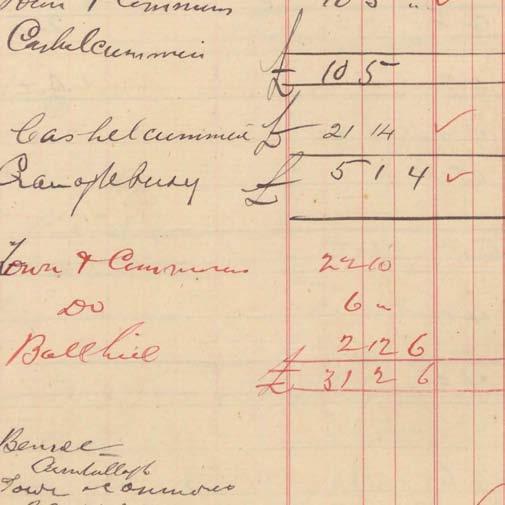 Town & Commons 10 5 " ✓
Cashelcummin
£ 10 5
Cashelcummin £ 21 14 ✓
£ 5 1 4 ✓
Town & Commons 22 10
Do 6 "
Ballhill 2 12 6
£ 31 2 6
Town & Commons